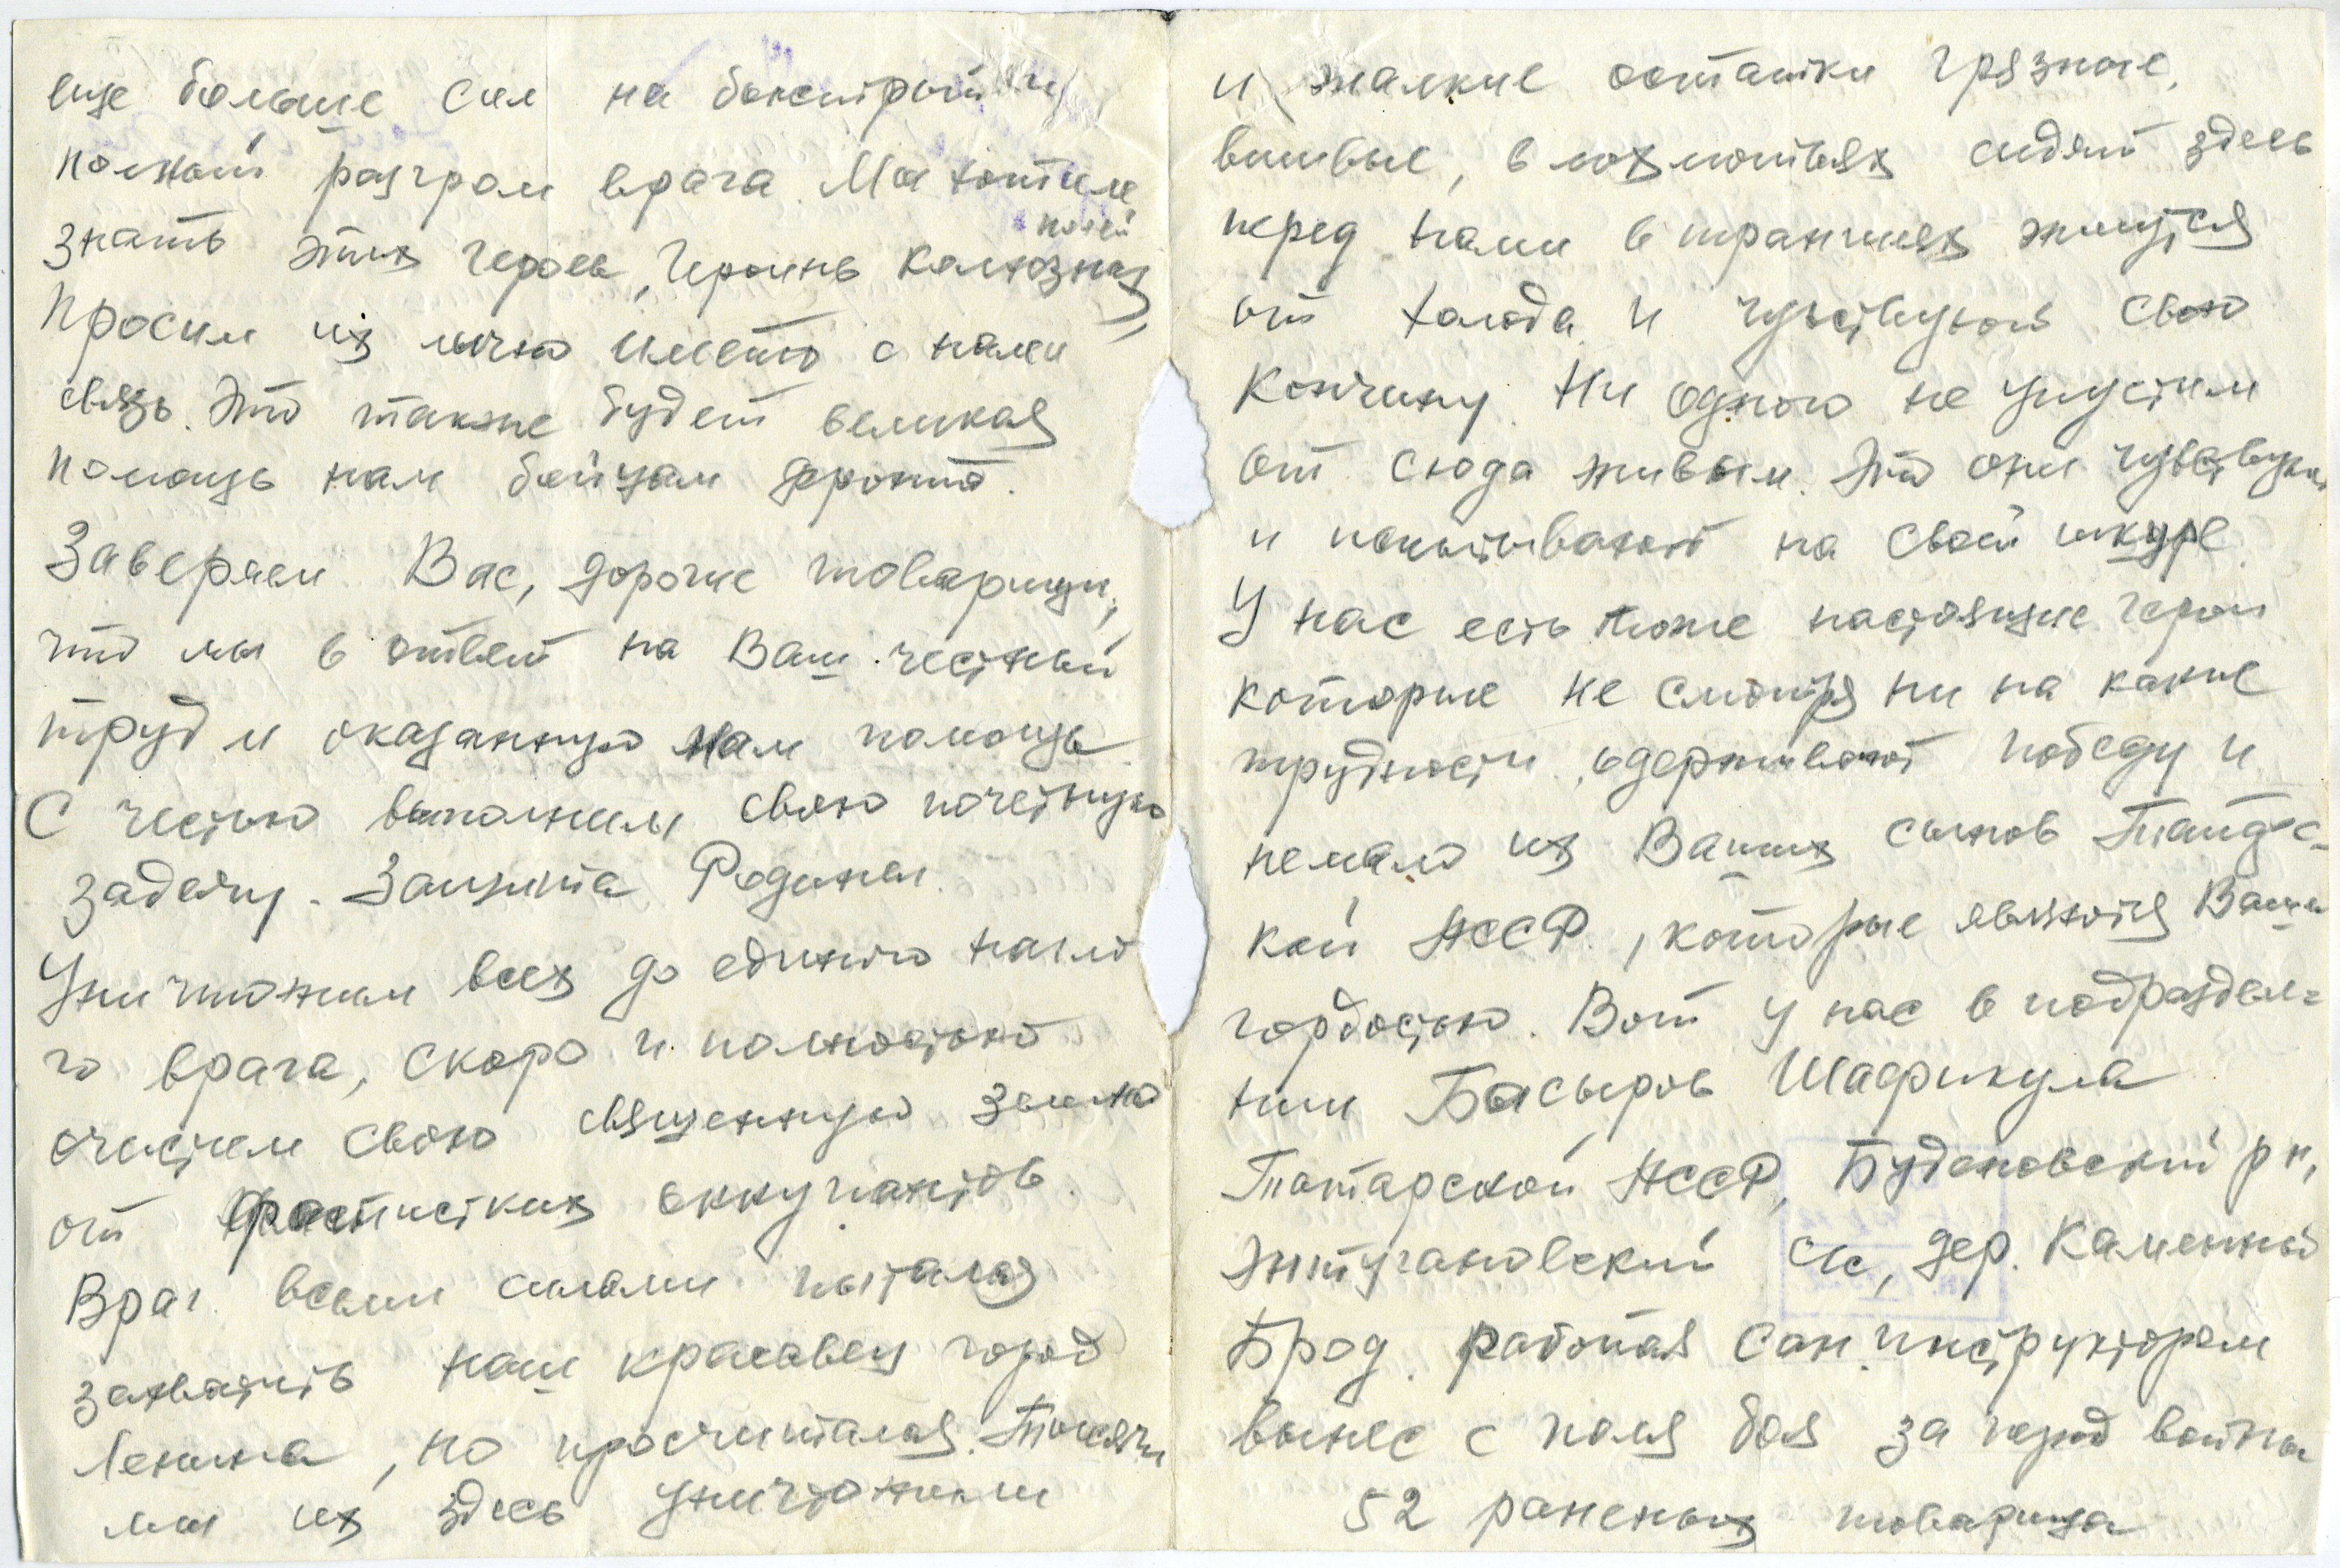 еще больше сил на быстрый и
полный разгром врага. Мы хотим
знать этих героев, героинь колхозных
полей
Просим их лично иметь с нами
связь. Это также будет великая
помощь нам бойцам фронта.
Заверяем Вас, дорогие товарищи,
что мы в ответ на Ваш честный
труд и оказанную нам помощь
С честью выполним свою почетную
задачу. Защита Родины.
Уничтожим всех до единого нагло
го врага, скоро и полностью
очистим свою священную землю
от фашистких оккупантов.
Враг всеми силами пытался
захватить наш красавец город
Ленина, но просчитался. Тысячи
мы их здесь уничтожили
и жалкие остатки грязные,
вшивые, в лохмотьях сидят здесь
перед нами в траншеях жмутся
от холода и чувствуют свою
кончину. Ни одного не упустим
от сюда живым. Это они чувствуют
и испытывают на своей шкуре.
У нас есть тоже настоящие герои
которые не смотря ни на какие
трудности одерживают победу и
немало из Ваших сынов
кой АССР, которые являются Вашей
гордостью. Вот у нас в подразделе=
нии Басыров Шафикула
Татарской АССР, Буденовский р н,
Энтугановский с/с, дер. Каменный
Брод. работая сан. инструктором
вынес с поля боя за период войны
52 раненых товарища